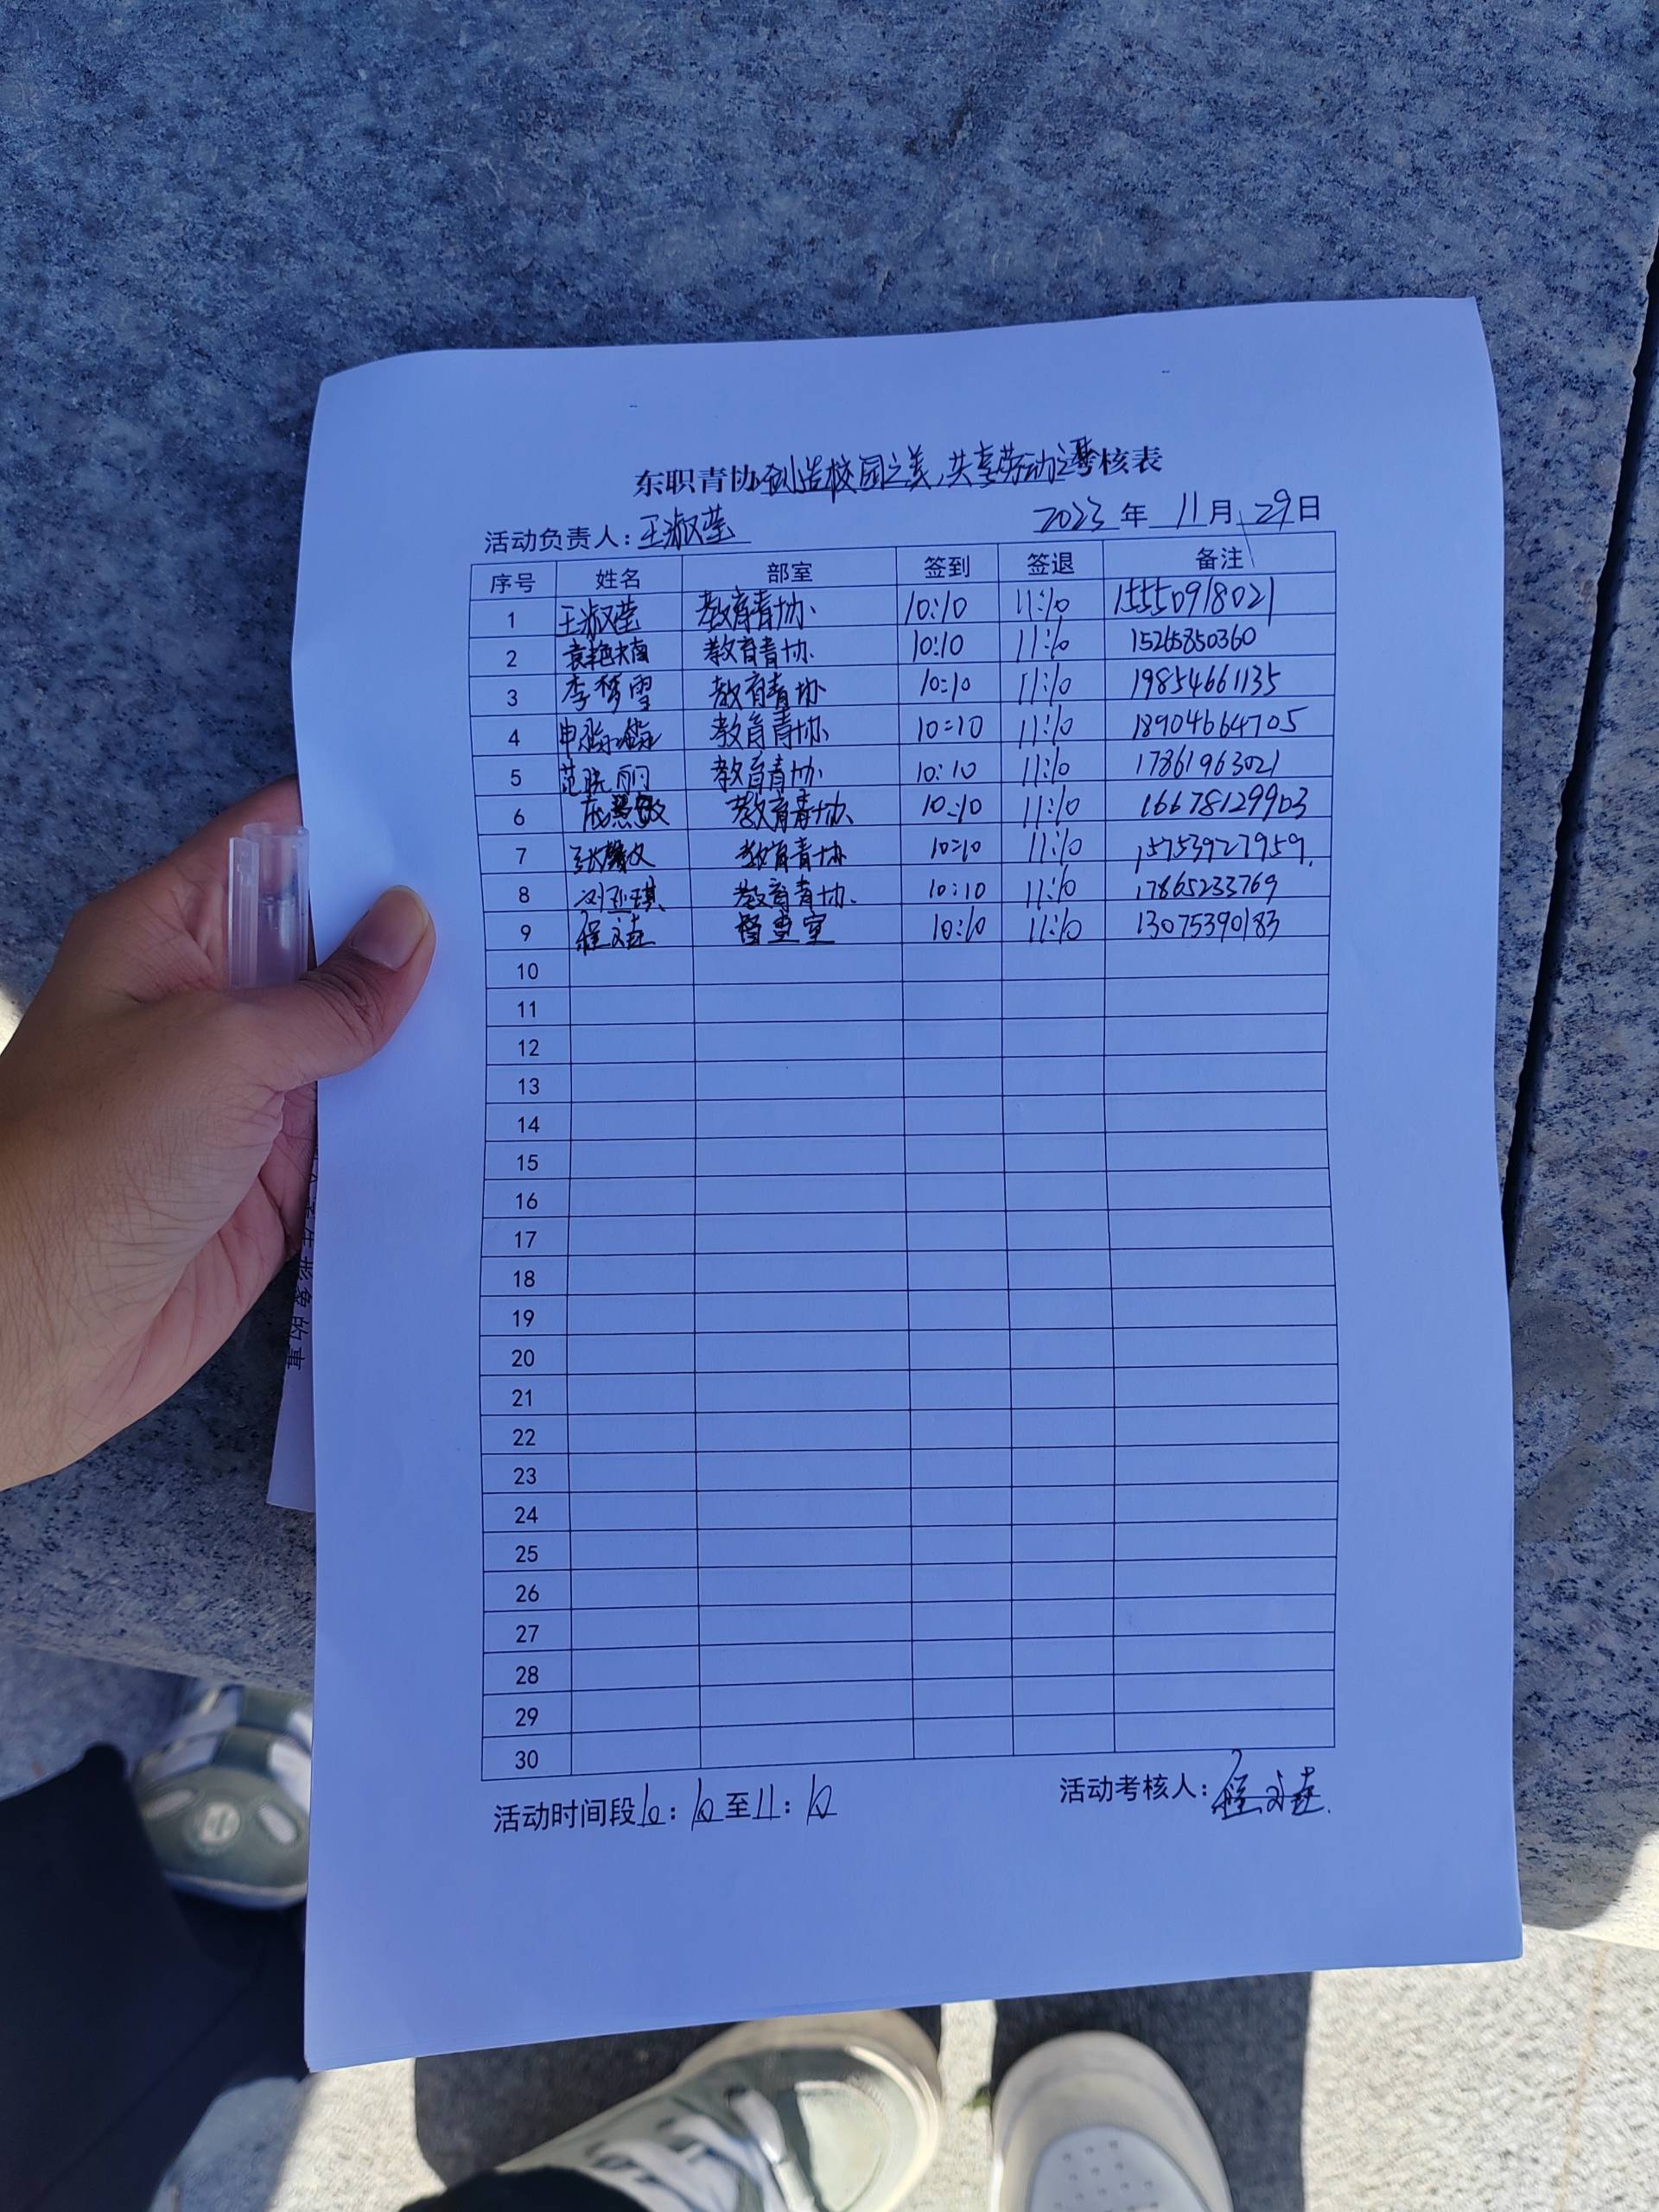 东职青协创造校园之美,共享劳动之 考核表
活动负责人:王淑莹 2023年11月29日
序号 姓名 部室 签到 签退 备注
1 王淑莹 教育青协 10:10 11:10 15550918021
2 袁艳楠 教育青协 10:10 11:10 15265850360
3 李梦雪 教育青协 10:10 11:10 19854661135
4 申 教育青协 10:10 11:10 18904664705
5 范晓丽 教育青协 10:10 11:10 17861963021
6 慧敏 教育青协 10:10 11:10 16678129903
7 张馨文 教育青协 10:10 11:10 15753927959
8 刘亚琪 教育青协 10:10 11:10 17865233769
9 程文 督查室 10:10 11:10 13075390183
10
11
12
13
14
15
16
17
18
19
20
21
22
23
24
25
26
27
28
29
30
活动时间段10:10至11:10 活动考核人:程文
学生形象的事